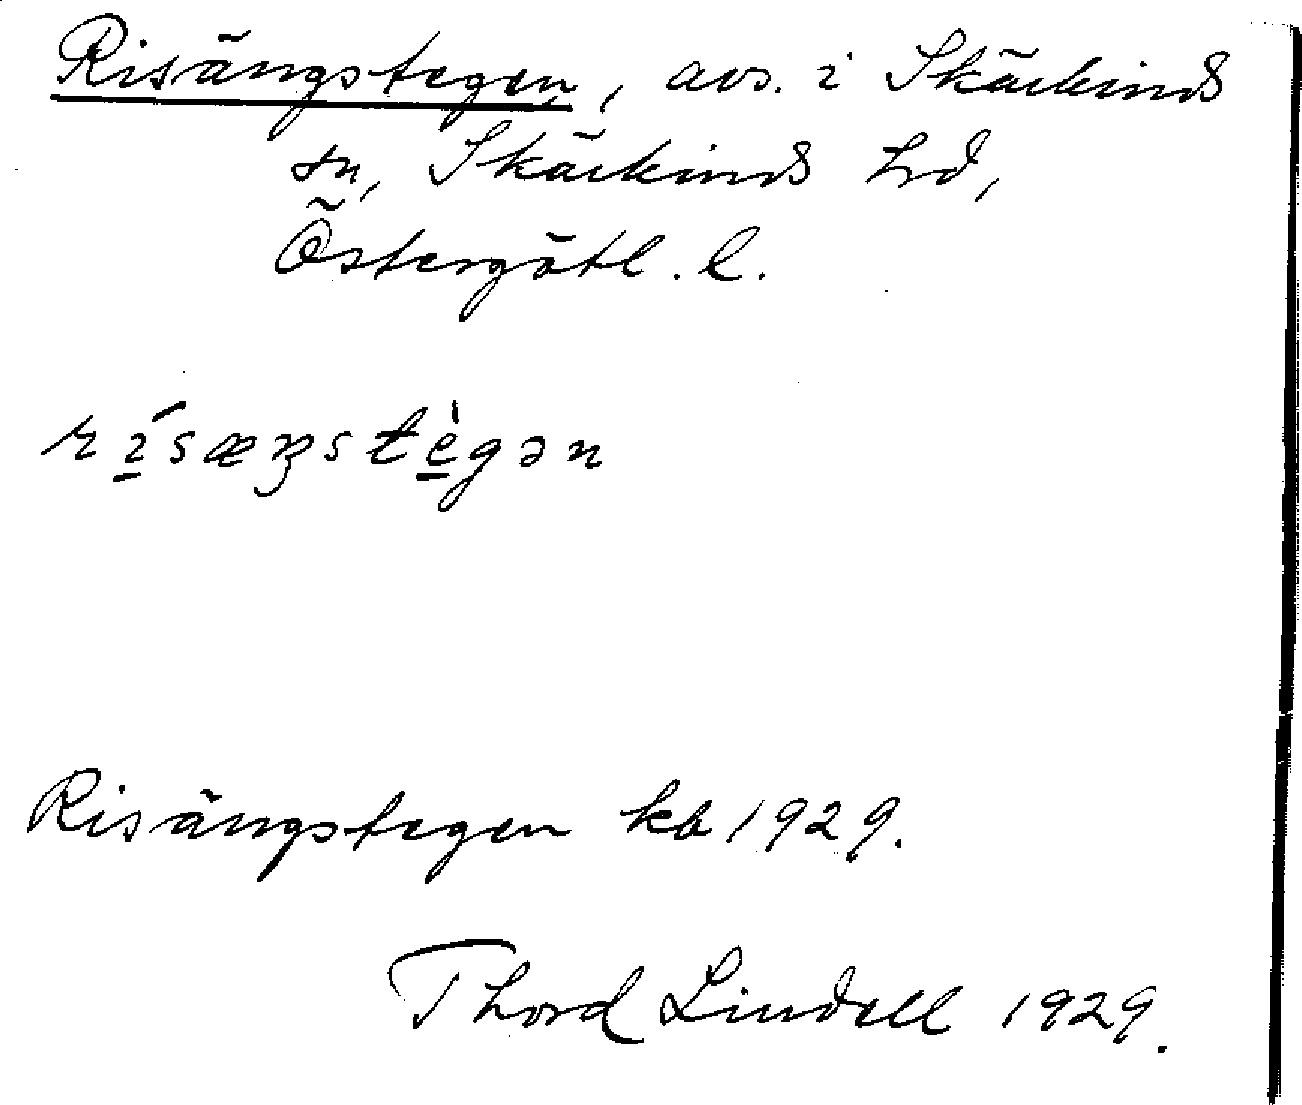 Risängstegen, avs. i Skärkinds
sn, Skärkinds hd,
Östergötl. l.
rí̲sæŋstè̲gən
Risängstegen kb 1929.
Thord Lindell 1929.